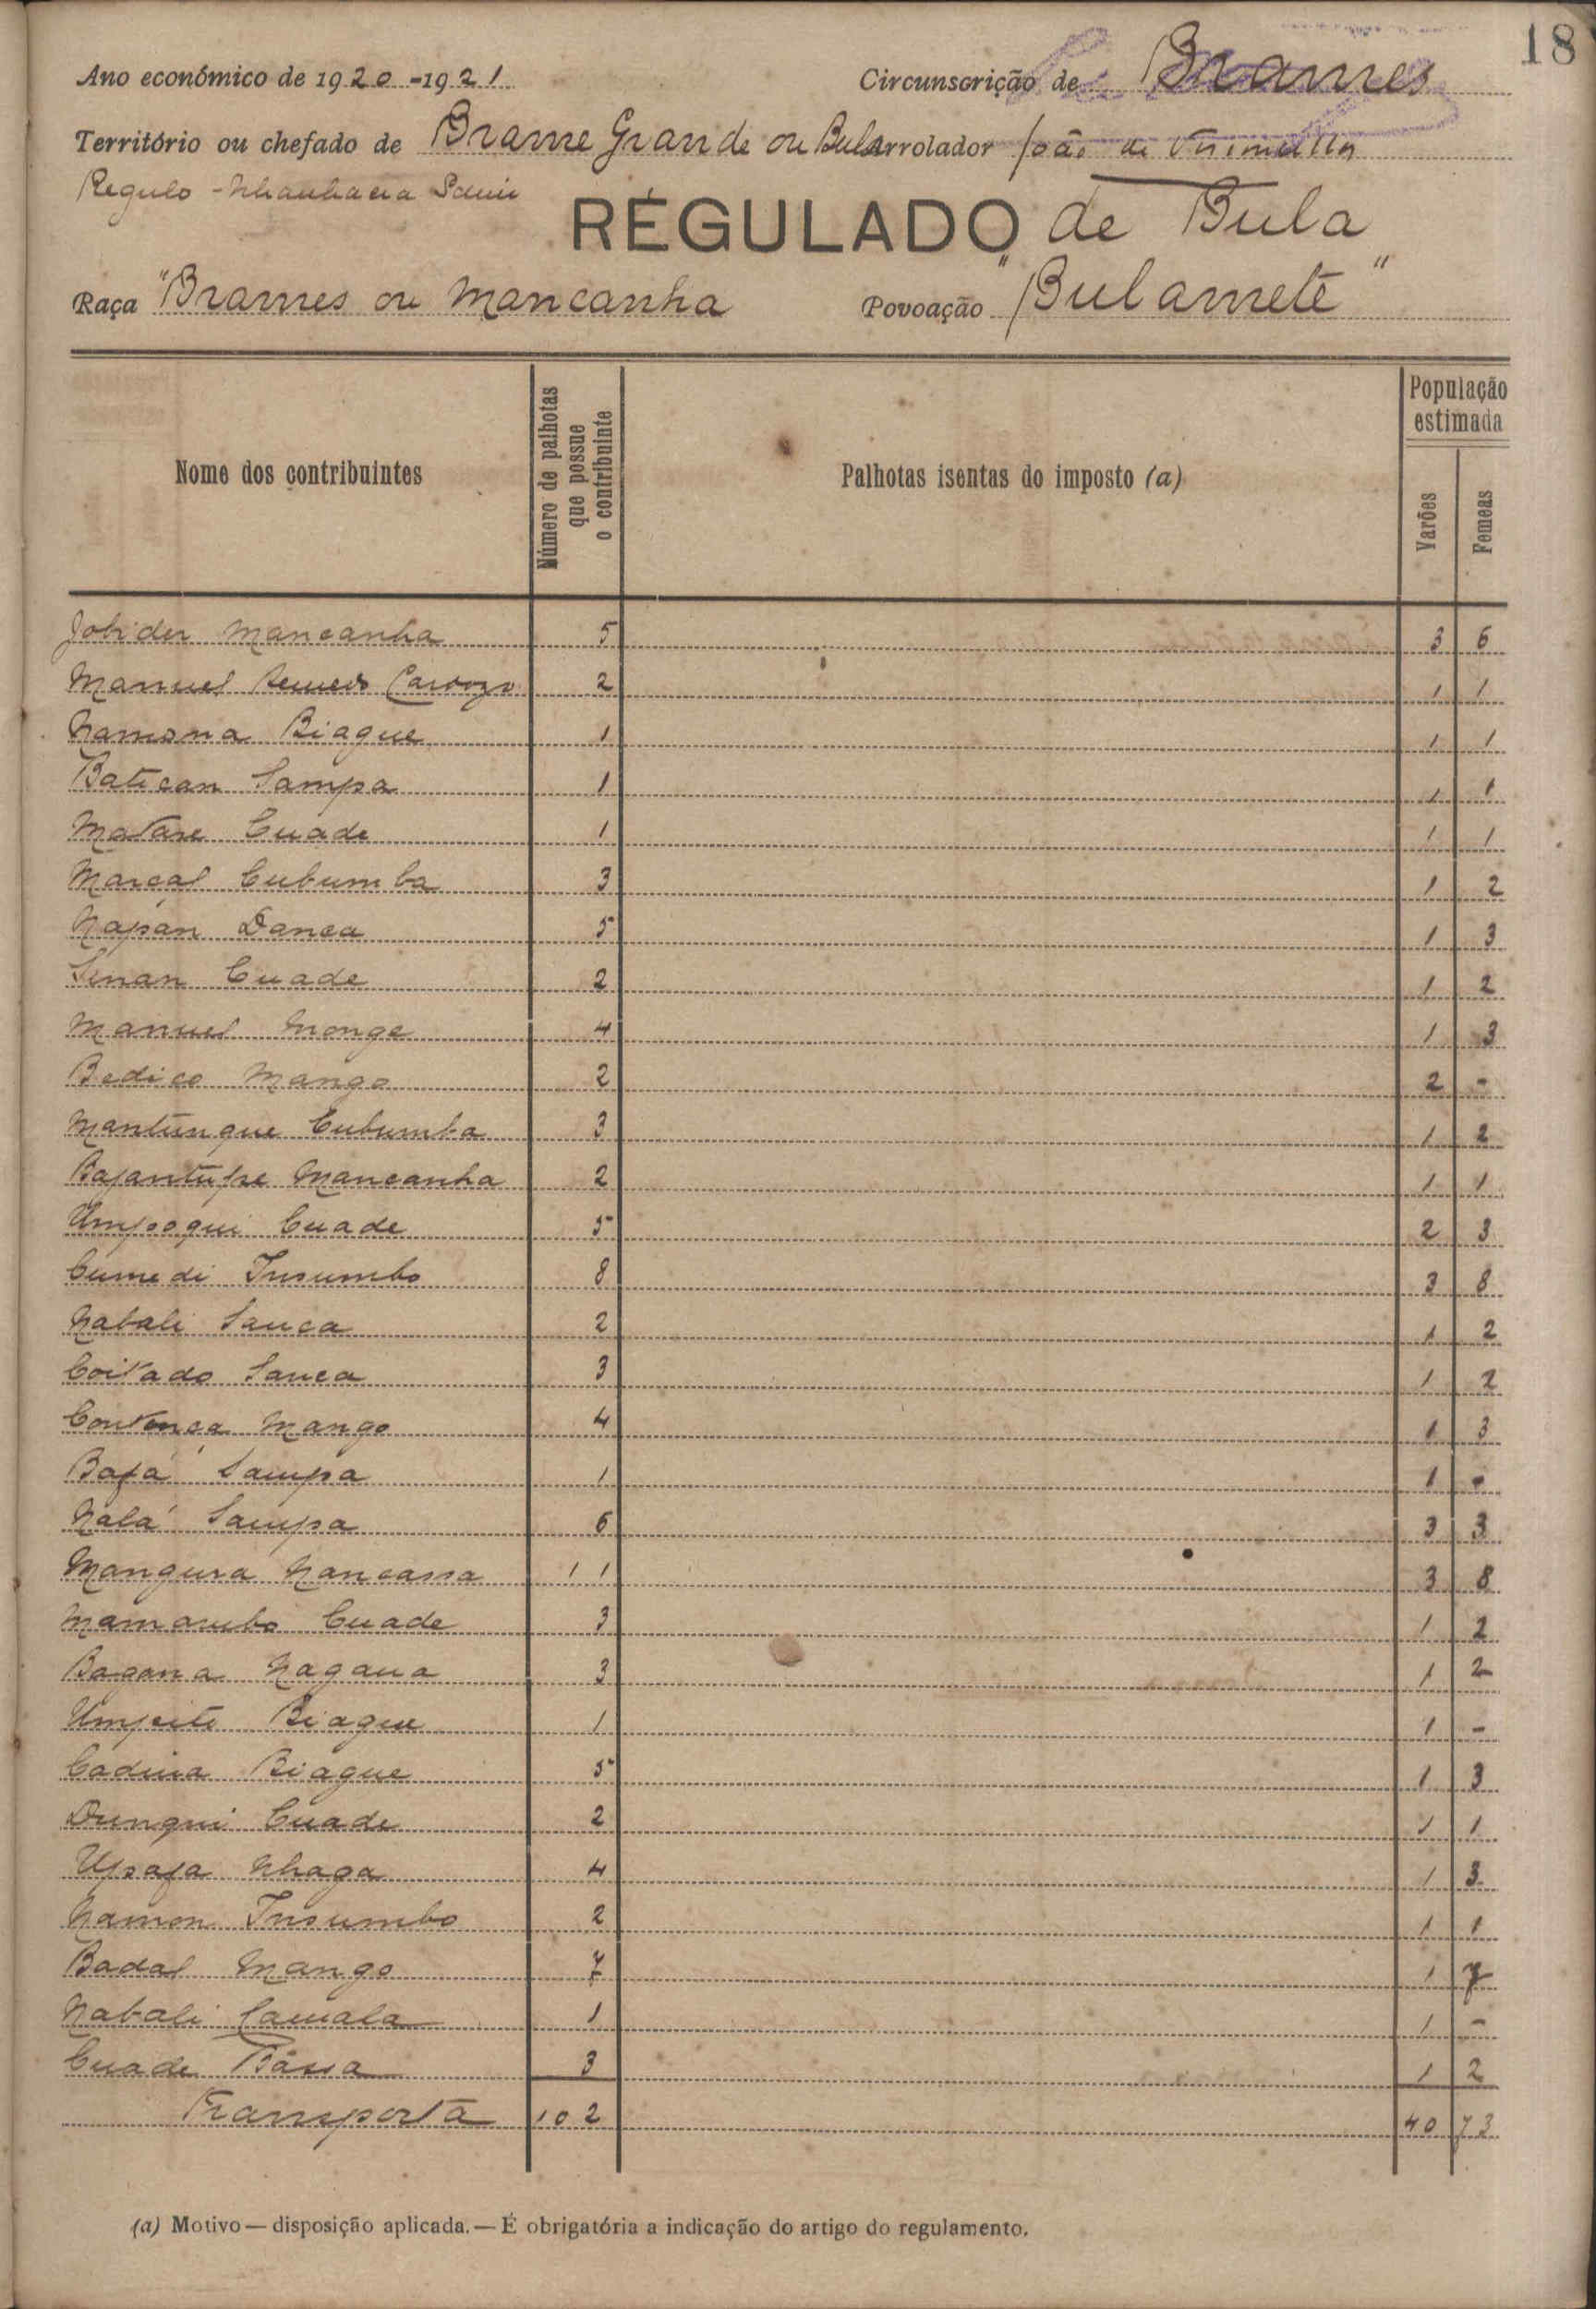 18
Ano económico de 1920-1921 Circunscrição de Brames
Território ou chefado de Brame Grande ou Bula Arrolador João de
Regulo -
RÉGULADO de Bula
Raça "Brames ou Mancanha" Povoação "Bulamete"
Nome dos contribuintes Número de palhotas que possue o contribuinte Palhotas isentas do imposto (a) População estimada Varões Femeas
Mancanha 5 3 6
Manuel 2 1 1
Namona Biague 1 1 1
Batican Sampa 1 1 1
Matare Cuade 1 1 1
Marcal Cubumba 3 1 2
Napan Danca 5 1 3
Sinan Cuade 2 1 2
Manuel Monge 4 1 3
Bedico Mango 2 2 -
Mantunque Cubumba 3 1 2
Bajantupe Mancanha 2 1 1
Umpoqui Cuade 5 2 3
Cumedi Insumbo 8 3 8
Nabali Sanca 2 1 2
Coitado Sanca 3 1 2
Mango 4 1 3
Bafá Sampa 1 1 -
Nalá Sampa 6 3 3
Mangura Nancassa 11 3 8
Mamambo Cuade 3 1 2
Bagana Nagana 3 1 2
Umpeite Biague 1 1 -
Cadina Biague 5 1 3
Dunqui Cuade 2 1 1
Upafa Nhaga 4 1 3
Namon Insumbo 2 1 1
Badal Mango 7 1 7
Nabali Camala 1 1 -
Cuade Bássa 3 1 2
Transporta 102 40 73
(a) Motivo — disposição aplicada. — É obrigatória a indicação do artigo do regulamento.